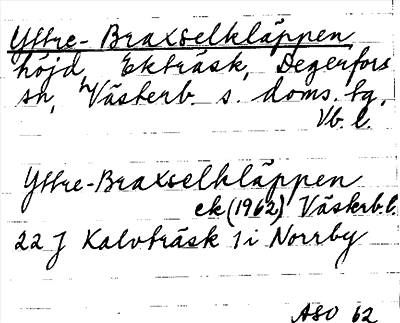 Yttre-Braxselkläppen
höjd, Ekträsk, Degerfors
sn, Västerb. s. doms. tg,
Vb. l.
Yttre-Braxselkläppen
ek (1962) Västerb. l.
22 J Kalvträsk 1 i Norrby
ASO 62